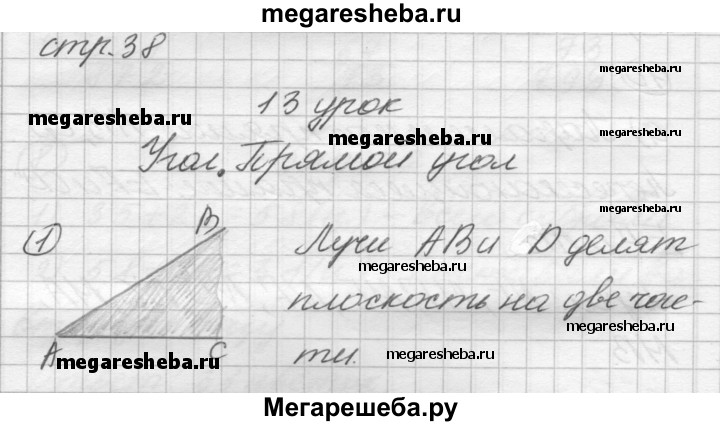 megaresheba.ru
стр. 38
megaresheba.ru
megaresheba.ru
13 урок
megaresheba.ru
Угол. Прямой угол
megaresheba.ru
① B Лучи AB и D делят
megaresheba.ru
плоскость на две час-
megaresheba.ru
A C ти.
megaresheba.ru
megaresheba.ru
Мегарешеба.ру